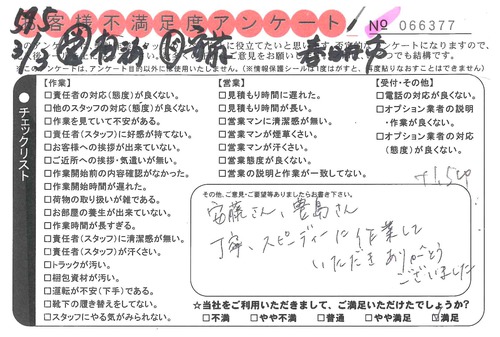 お客様不満足度アンケート
No 066377
役立てたいと思い
※このアンケートは、アンケート目的以外に使用いたしません。(※情報保護シールは1度はがすと、再度貼りなおすことはできません)
チェックリスト
【作業】
□責任者の対応(態度)が良くない。
□他のスタッフの対応(態度)が良くない。
□作業を見ていて不安がある。
□責任者(スタッフ)に好感が持てない。
□お客様への挨拶が出来ていない。
□ご近所への挨拶・気遣いが無い。
□作業開始前の内容確認がなかった。
□作業開始時間が遅れた。
□荷物の取り扱いが雑である。
□お部屋の養生が出来ていない。
□作業時間が長すぎる。
□責任者(スタッフ)に清潔感が無い。
□責任者(スタッフ)が汗くさい。
□トラックが汚い。
□梱包資材が汚い。
□運転が不安(下手)である。
□靴下の履き替えをしてない。
□スタッフにやる気がみられない。
【営業】
□見積もり時間に遅れた。
□見積もり時間が長い。
□営業マンに清潔感が無い。
□営業マンが煙草くさい。
□営業マンが汗くさい。
□営業態度が良くない。
□営業の説明と作業が一致してない。
【受付・その他】
□電話の対応が良くない。
□オプション業者の説明
・作業が良くない。
□オプション業者の対応
(態度)が良くない。
その他、ご意見・ご要望等ありましたらお書き下さい。
安藤さん、豊島さん
丁寧、スピーディーに作業して
いただきありがとう
ございました
☆当社をご利用いただきまして、ご満足いただけたでしょうか?
□不満 □やや不満 □普通 □やや満足 ☑満足